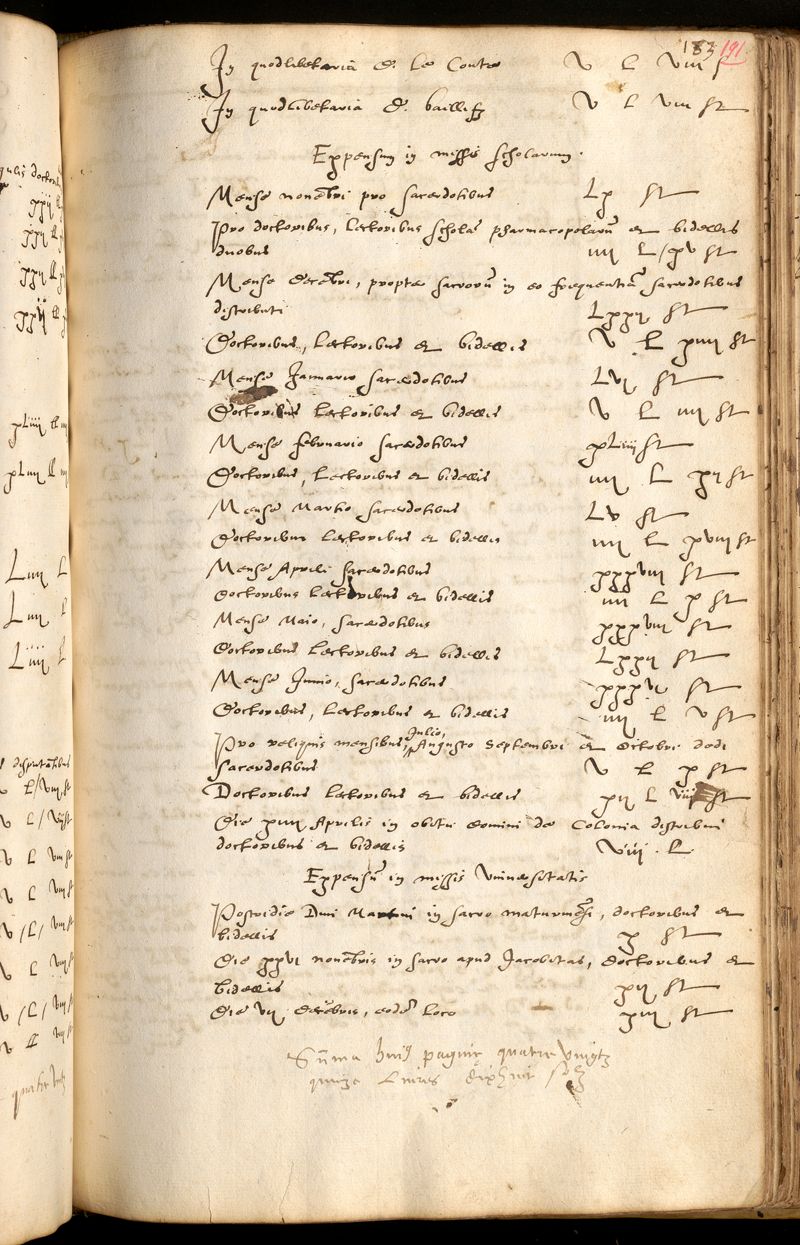 183 191
In quodlibetaria d. Le Conte v L viii s
In quodlibetaria d. baillif v L viii st
Expensum in missis scholarum.
Mense nouēbri pro sacerdotibus Lx st
Pro doctoribus, lectoribus scholæ pharmacopolarū et bidellis
duobus iiii L / xv st
Mense decēbri, propter sacrorū in eo frequentiā sacerdotibus
distributi Lxxii st
Doctoribus, lectoribus et bidellis v L xiiii st
Mense Januario sacerdotibus Lvi st
Doctoribus lectoribus et bidellis v L iiii st
Mense februario sacerdotibus xLiiii st
Doctoribus, lectoribus et bidellis iiii L xii st
Mense Martio sacerdotibus Lv st
Doctoribus lectoribus et bidellis iiii L xviii st
Mense Aprili sacerdotibus xxxviii st
doctoribus lectoribus et bidellis iiii L x st
Mense Maio, sacerdotibus xxxviii st
doctoribus lectoribus et bidellis Lxxii st
Mense Junio, sacerdotibus xxxvi st
Doctoribus, lectoribus et bidellis iiii L v st
Pro reliquis mensibus, Julio, Augusto Septembri et Octobri dedi
sacerdotibus v L x st
Doctoribus lectoribus et bidellis xii L viii st
Die xiiii Aprilis in obitu domini de Colonia distribui
doctoribus et bidellis viii L
Expensū in missis vniuersitatis
Postridie Diui Martini in sacro, doctoribus et
bidellis x st
Die xxvi nouēbris in sacro apud Jacobitas, doctoribus et
bidellis xii st
Die vii decēbris, eodē loco xiii st
Sūma huius pagine quatre vingtz
quinze Liures dixhuit